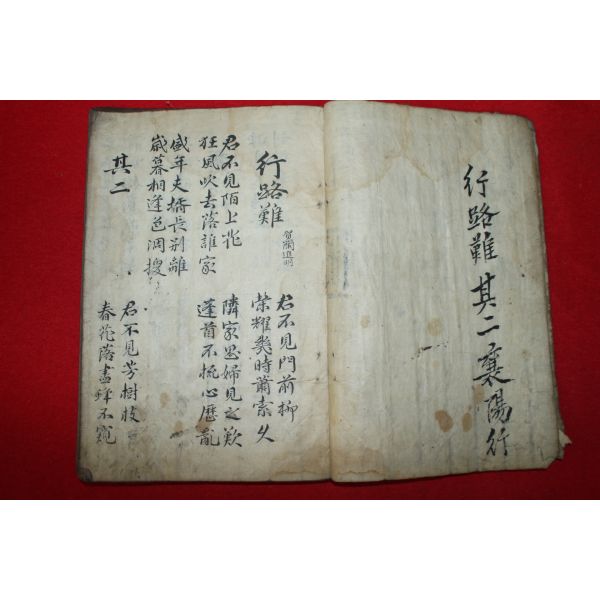 行路難 其二 襄陽行
行路難 賀蘭進明
君不見門前柳
榮耀幾時蕭索久
君不見陌上花
狂風吹去落誰家
隣家思婦見之歎
蓬首不梳心歷亂
盛年夫婿長別離
歲暮相逢色凋
其二
君不見芳樹枝
春花落盡蜂不窺